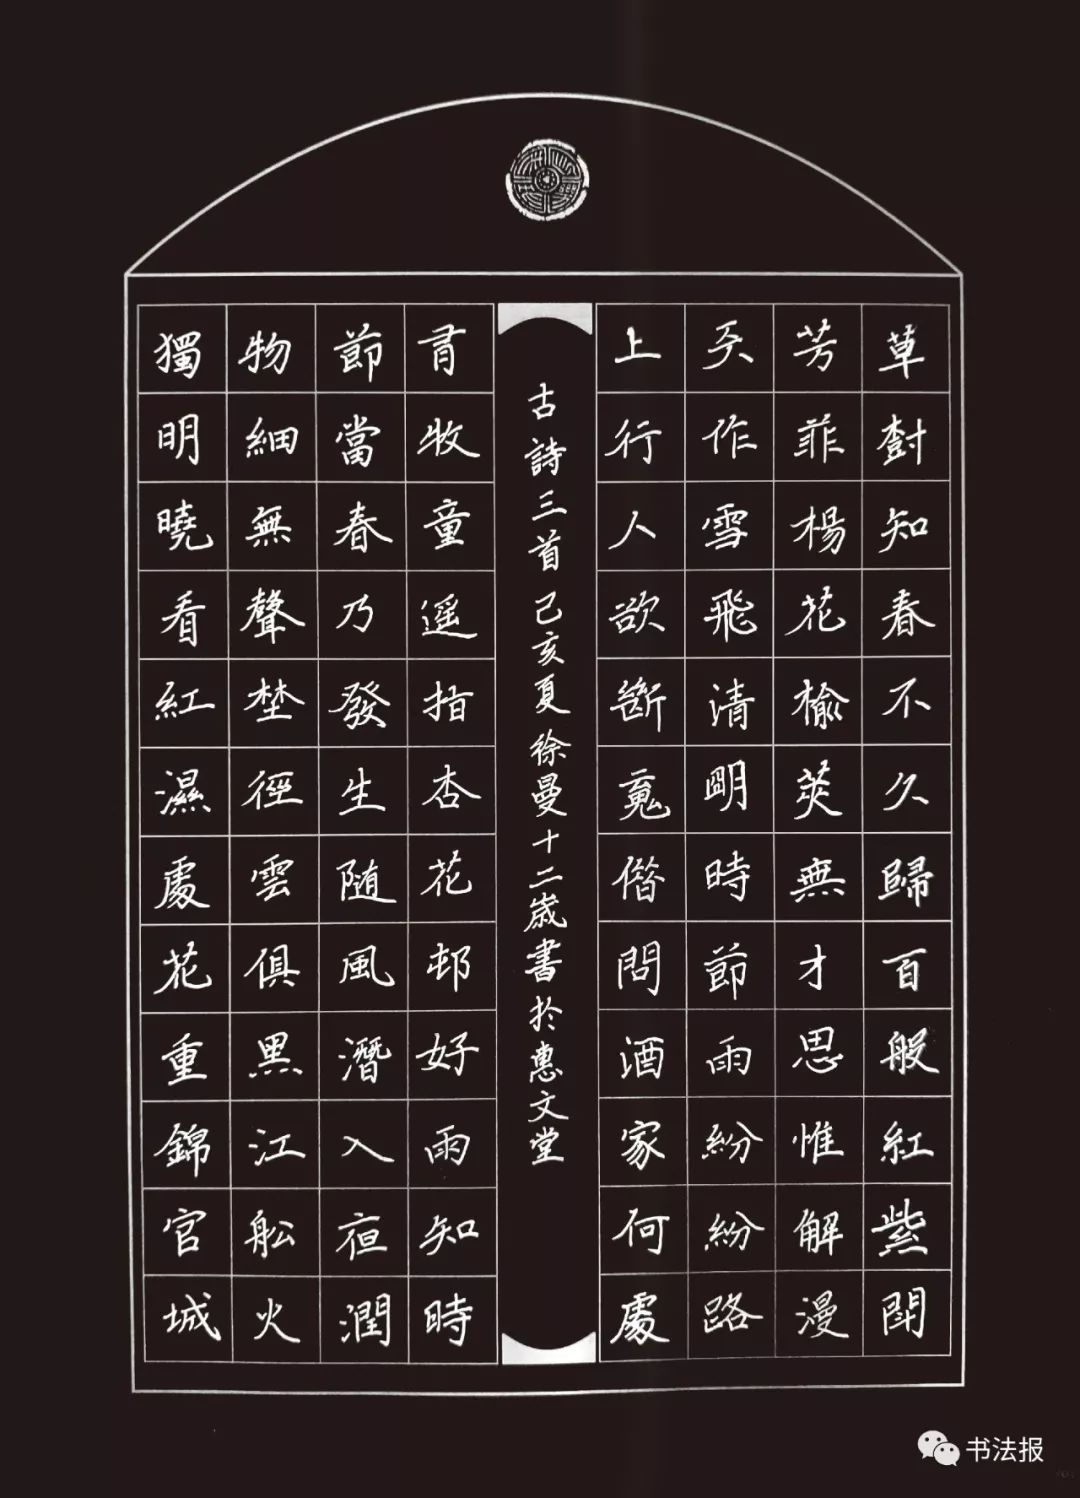 草樹知春不久歸百般紅紫鬥
芳菲楊花榆莢無才思惟解漫
天作雪飛清明時節雨紛紛路
上行人欲斷魂借問酒家何處
古詩三首 己亥夏徐曼十二歲書於惠文堂
有牧童遥指杏花邨好雨知時
節當春乃發生随風潛入夜潤
物細無聲埜徑雲俱黑江舩火
獨明曉看紅濕處花重錦官城
书法报